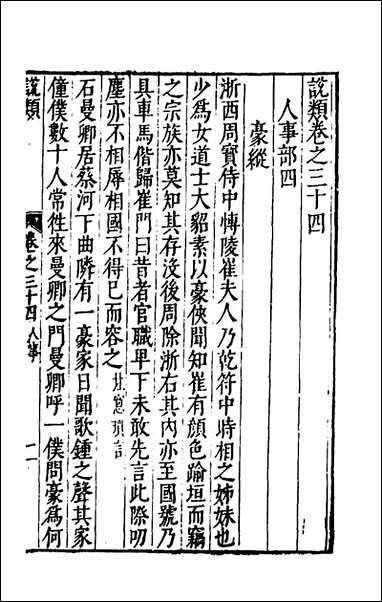 說類卷之三十四
人事部四
豪縱
浙西周寶侍中愽陵崔夫人乃乾符中時相之姊妹也
少爲女道士大貂素以豪俠聞知崔有顔色踰垣而竊
之宗族亦莫知其存没後周除浙右其内亦至國號乃
具車馬偕歸崔門曰昔者官職卑下未敢先言此際叨
塵亦不相辱相國不得已而容之北窻瑣言
石曼卿居蔡河下曲隣有一豪家日聞歌鍾之聲其家
僮僕數十人常徃來曼卿之門曼卿呼一僕問豪爲何
說類
卷之三十四人事
一